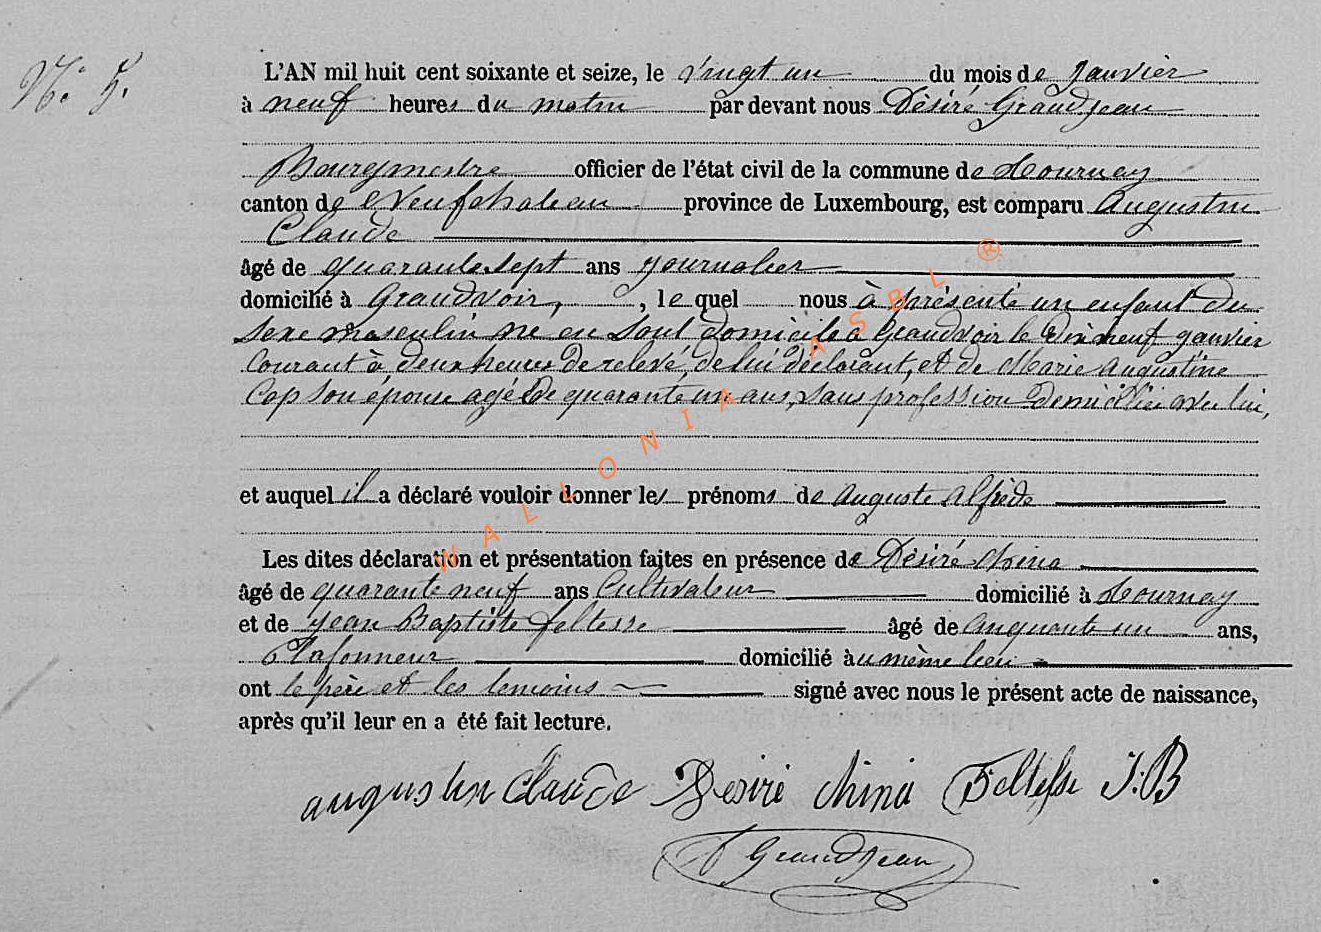 N° 5.
L'AN mil huit cent soixante et seize, le vingt un du mois de Janvier
à neuf heures du matin par devant nous Désiré Grandjean
Bourgmestre officier de l'état civil de la commune de Tournay
canton de Neufchateau province de Luxembourg, est comparu Augustin
Claude
âgé de quarante sept ans journalier
domicilié à Grandvoir, , le quel nous à présenté un enfant du
sexe masculin né en sont domicile à Grandvoir le dix neuf janvier
courant à deux heures de relevé, de lui déclarant, et de Marie Augustine
Cop son épouse agée de quarante un ans, sans profession domiciliée avec lui,
et auquel il a déclaré vouloir donner les prénoms de Auguste Alfrède
Les dites déclaration et présentation faites en présence de Désiré China
âgé de quarante neuf ans Cultivateur domicilié à Tournay
et de Jean Baptiste Feltesse âgé de cinquante un ans,
Plafonneur domicilié au même lieu
ont le père et les temoins signé avec nous le présent acte de naissance,
après qu'il leur en a été fait lecture.
augustin Claude Desiré China Feltesse J.B
Grandjean
WALLONIA ASBL ®